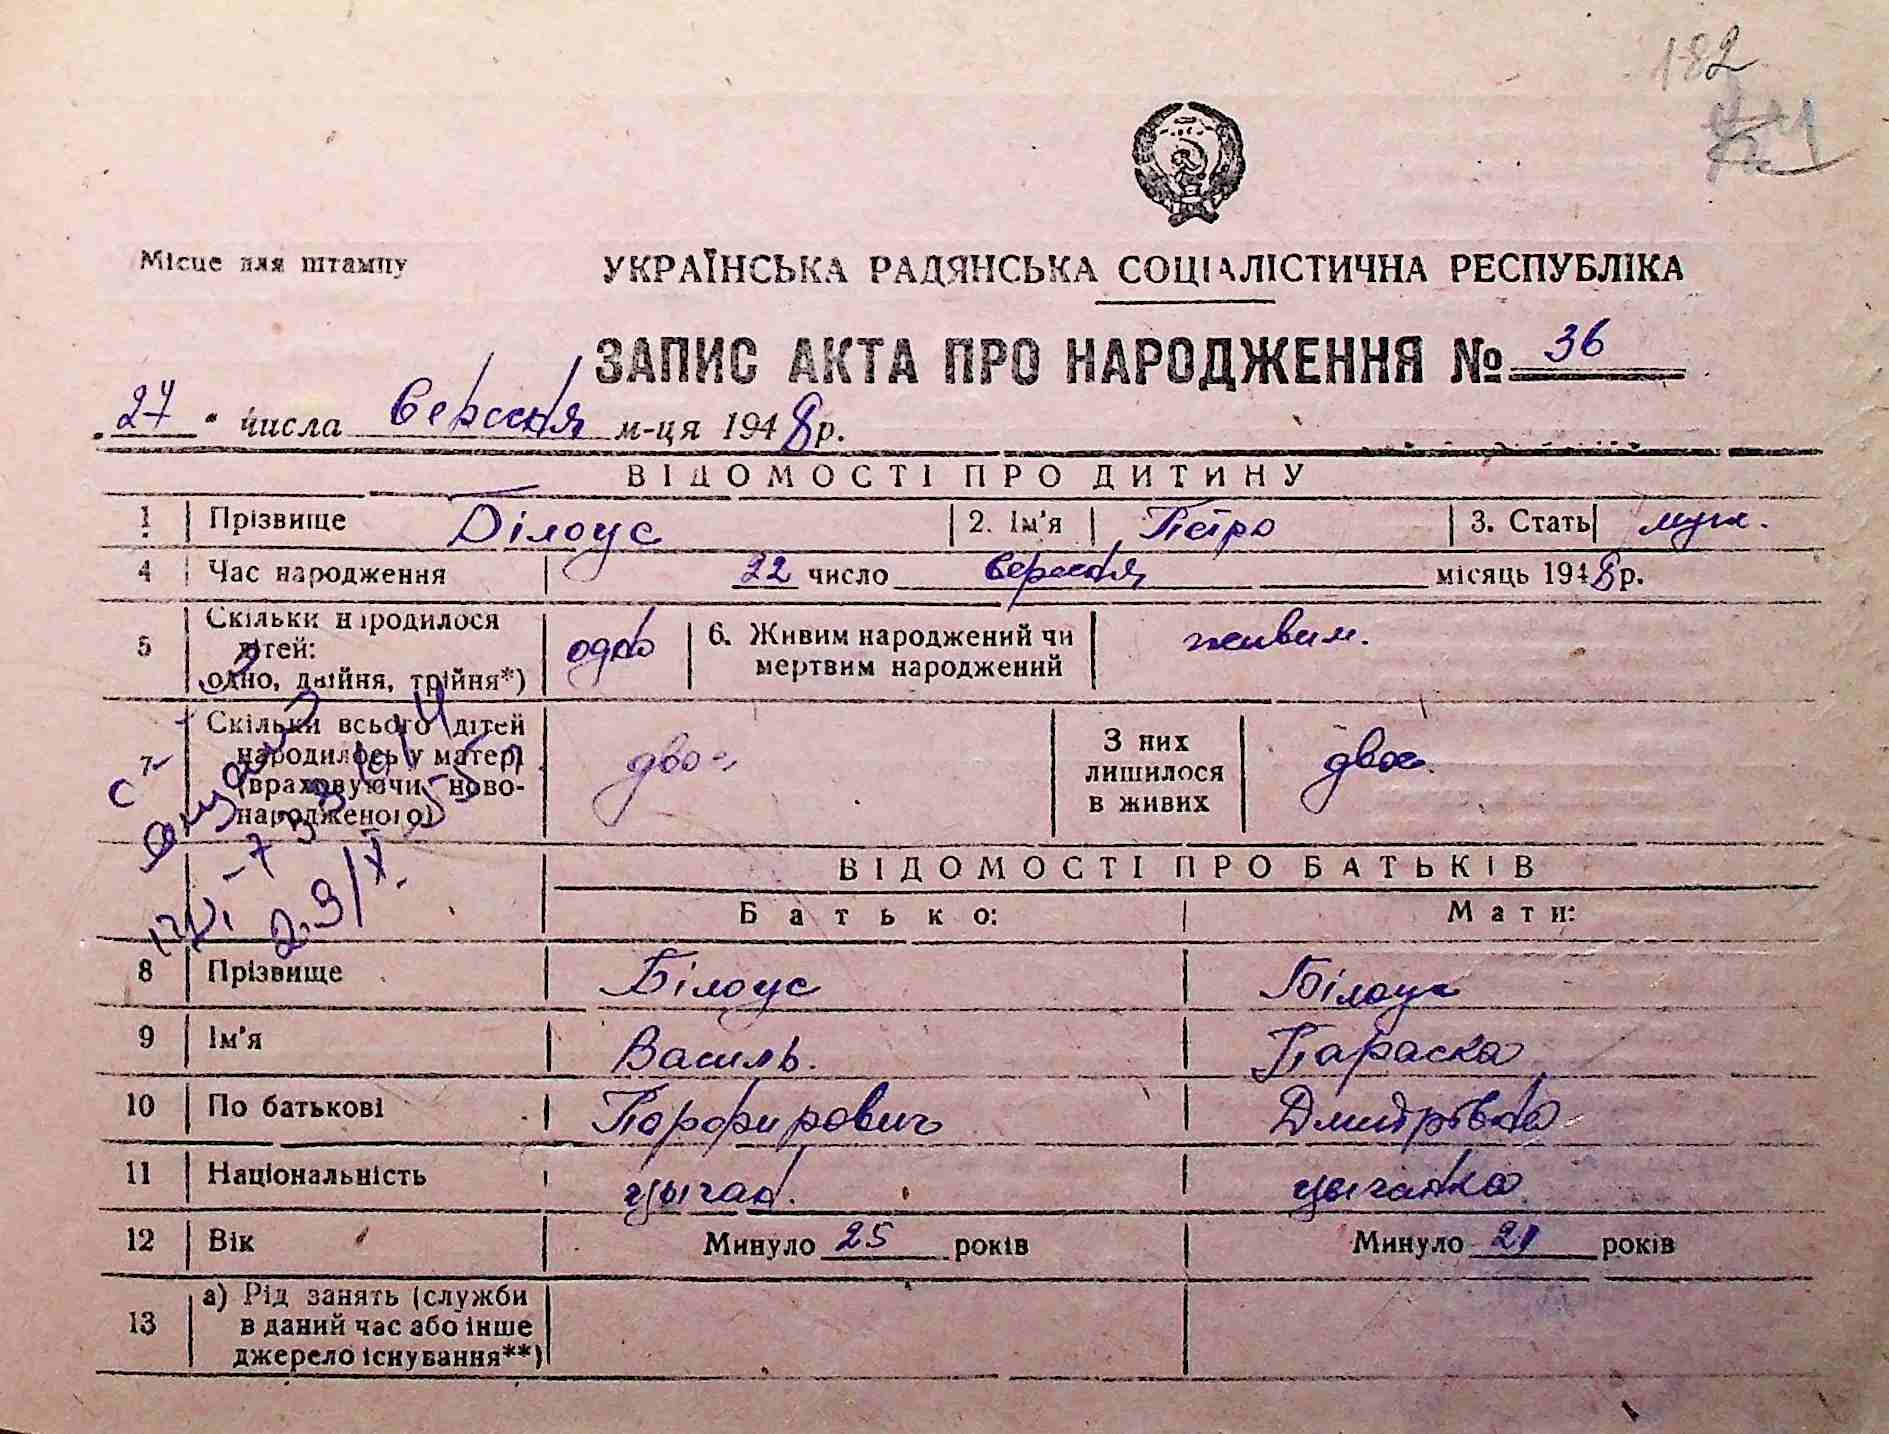 182
Місце для штампу
УКРАЇНСЬКА РАДЯНСЬКА СОЦІАЛІСТИЧНА РЕСПУБЛІКА
ЗАПИС АКТА ПРО НАРОДЖЕННЯ № 36
"27" числа вересня м-ця 1948 р.
ВІДОМОСТІ ПРО ДИТИНУ
1 Прізвище Білоус 2. Ім'я Петро 3. Стать муж.
4 Час народження 22 число вересня місяць 1948 р.
5 Скільки народилося дітей: одно, двійня, трійня*) одно 6. Живим народжений чи мертвим народжений живим.
7 Скільки всього дітей народилось у матері (враховуючи новонародженого) двоє З них лишилося в живих двоє
ВІДОМОСТІ ПРО БАТЬКІВ
Батько: Мати:
8 Прізвище Білоус Білоус
9 Ім'я Василь. Параска
10 По батькові Порфирович Дмитрівна
11 Національність цыган. цыганка
12 Вік Минуло 25 років Минуло 21 років
13 а) Рід занять (служби в даний час або інше джерело існування**)